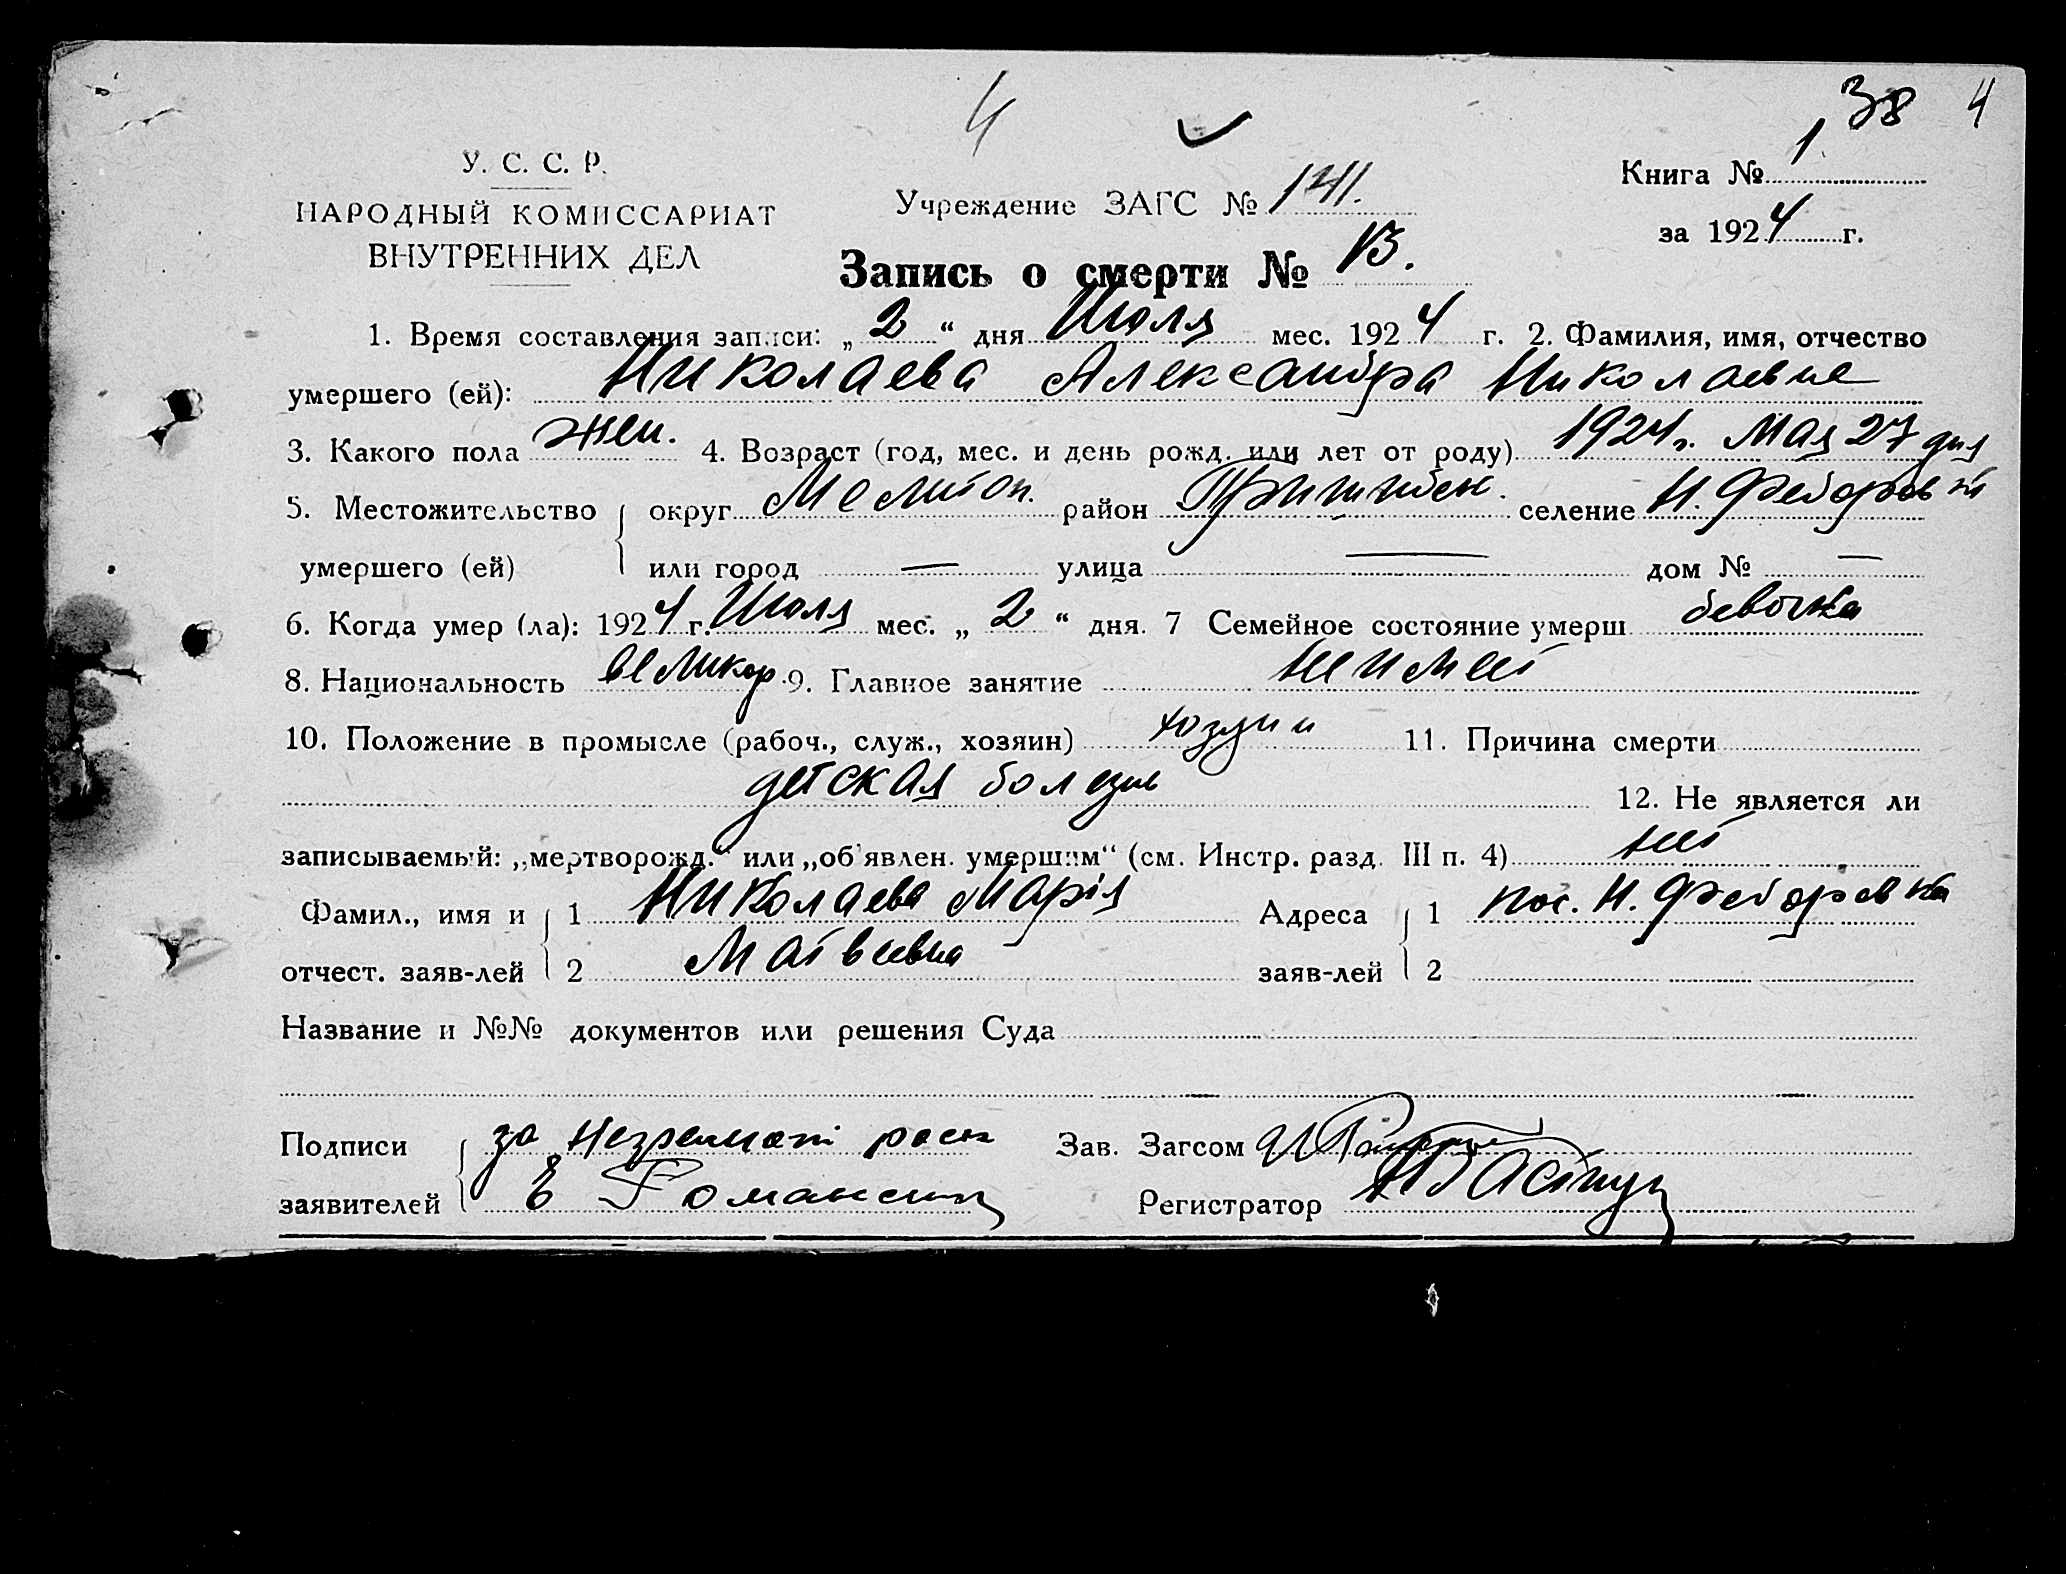 4
38 4
У. С. С. Р.
НАРОДНЫЙ КОМИССАРИАТ
ВНУТРЕННИХ ДЕЛ
Учреждение ЗАГС № 141.
Книга № 1
за 1924 г.
Запись о смерти № 13.
1. Время составления записи: „2“ дня Июля мес. 1924 г. 2. Фамилия, имя, отчество
умершего (ей): Николаева Александра Николаевне
3. Какого пола жен. 4. Возраст (год, мес. и день рожд. или лет от роду) 1924г. Мая 27 дня
5. Местожительство умершего (ей) { округ Мелитоп. район Пришибск. селение Н. Федоровка
или город — улица — дом № —
6. Когда умер (ла): 1924 г. Июля мес. „2“ дня. 7 Семейное состояние умерш девочка
8. Национальность великор. 9. Главное занятие не имеет
10. Положение в промысле (рабоч., служ., хозяин) хозяин 11. Причина смерти
детская болезнь 12. Не является ли
записываемый: „мертворожд.“ или „об'явлен. умершим“ (см. Инстр. разд. III п. 4) нет
Фамил., имя и отчест. заяв-лей { 1 Николаева Марія Адреса заяв-лей { 1 пос. Н. Федоровка
2 Матвеевна 2
Название и №№ документов или решения Суда
Подписи заявителей { за неграмот расп Зав. Загсом
Е Романенко Регистратор